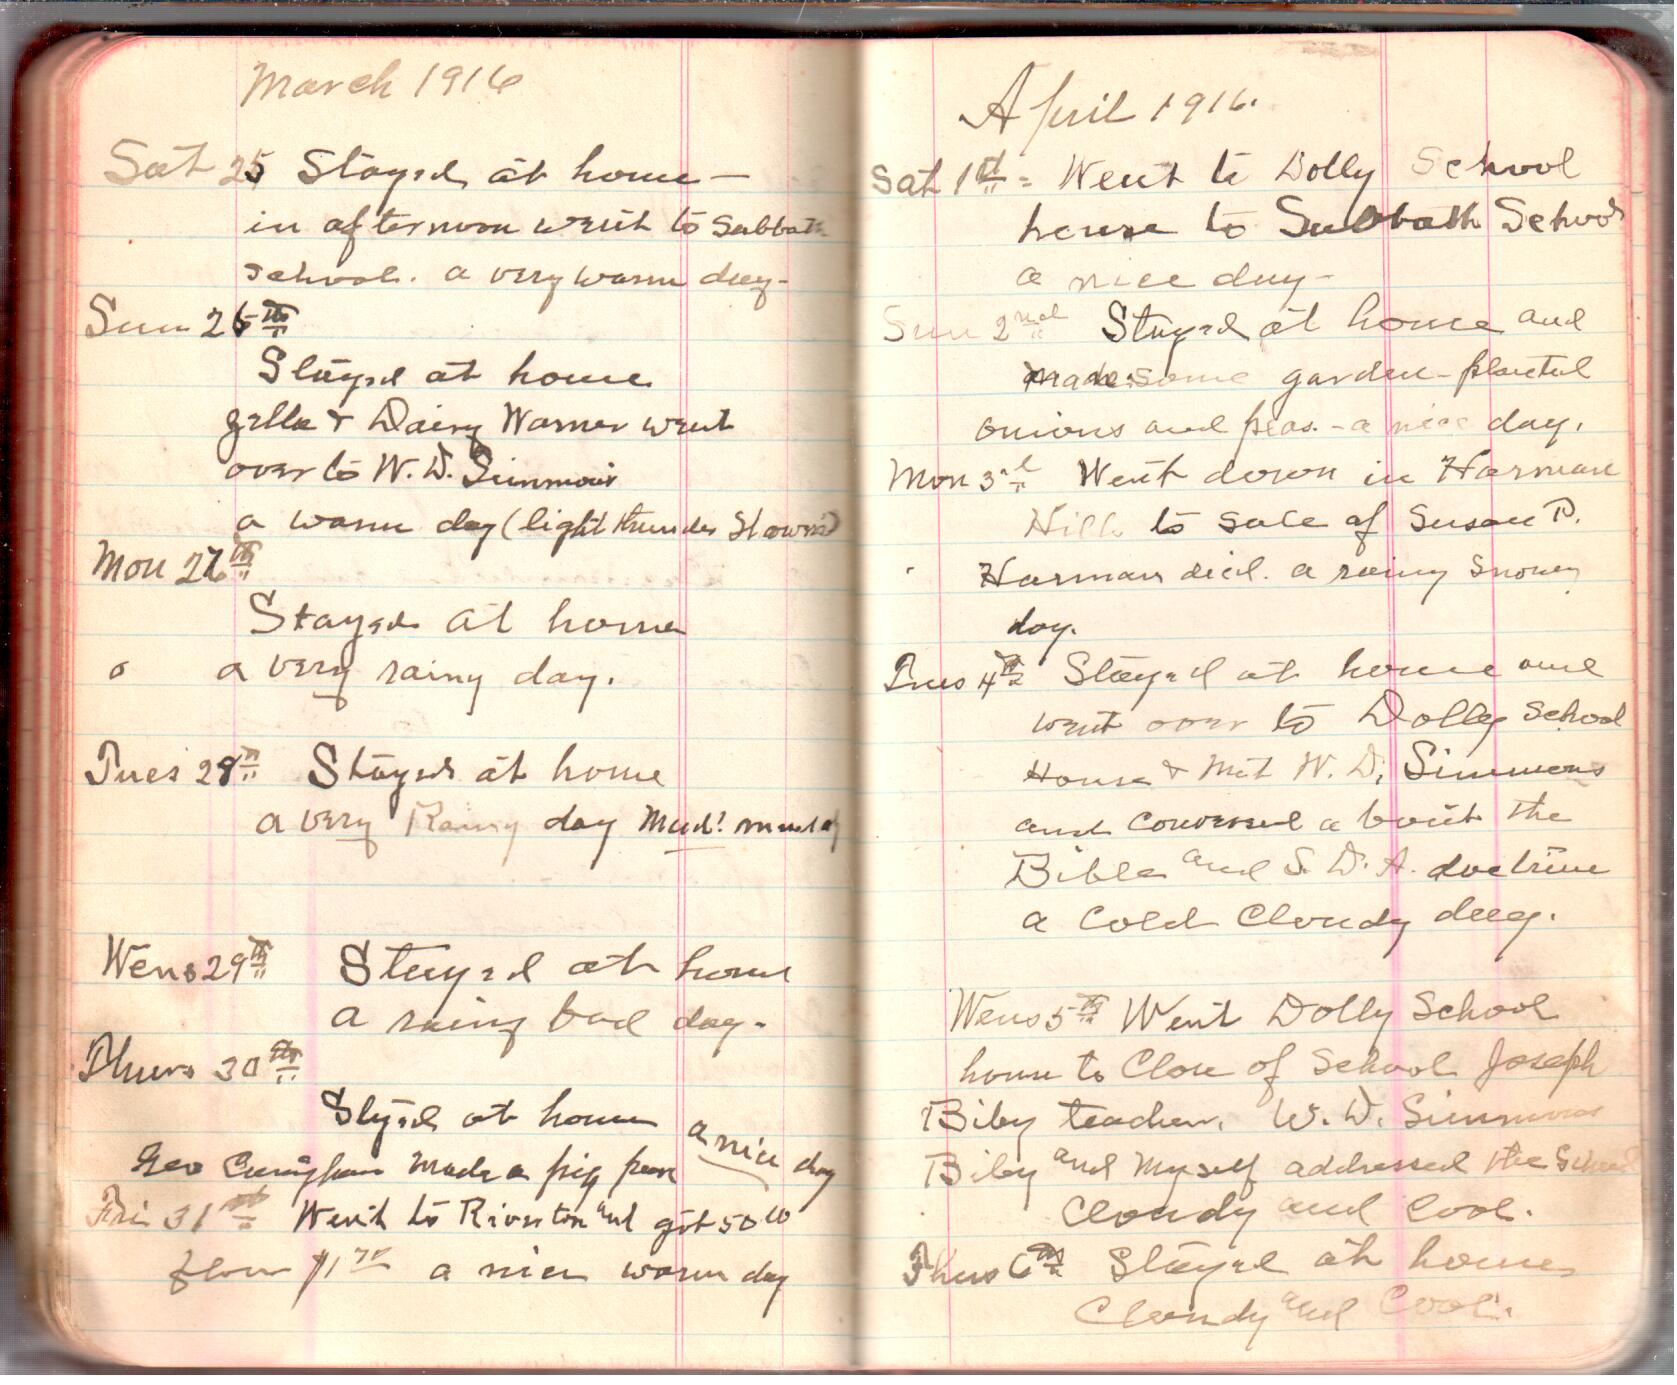 March 1916
Sat 25 Stayed at home —
in afternoon went to Sabbath
school. a very warm day-
Sun 26th
Stayed at home
& Daisy Warner went
over to W. D. Simmons
a warm day (light thunder showers)
Mon 27th
Stayed at home
a very rainy day.
Tues 28th Stayed at home
a very Rainy day Mud! mud
Wens 29th Stayed at home
a rainy bad day-
Thurs 30th
Styed at home a nice day
Geo Cunigham made a pig pen
Fri 31st Went to Riverton and got 50 lb
flour $1.75 a nice warm day
April 1916.
Sat 1st = Went to Dolly School
house to Sabbath School
a nice day-
Sun 2nd Stayed at home and
made some garden - planted
onions and peas. - a nice day.
Mon 3rd Went down in Harman
Hills to sale of Susan P.
Harman decd. a rainy Snowey
day.
Tues 4th Stayed at home and
went over to Dolly School
House & Met W. D. Simmons
and conversed a bout the
Bible and S. D. A. doctrine
a cold Cloudy day.
Wens 5th Went Dolly School
house to Close of School Joseph
Biby teacher. W. D. Simmons
Biby and Myself addressed the School
Cloudy and Cool.
Thurs 6th Stayed at home
Cloudy and Cool.